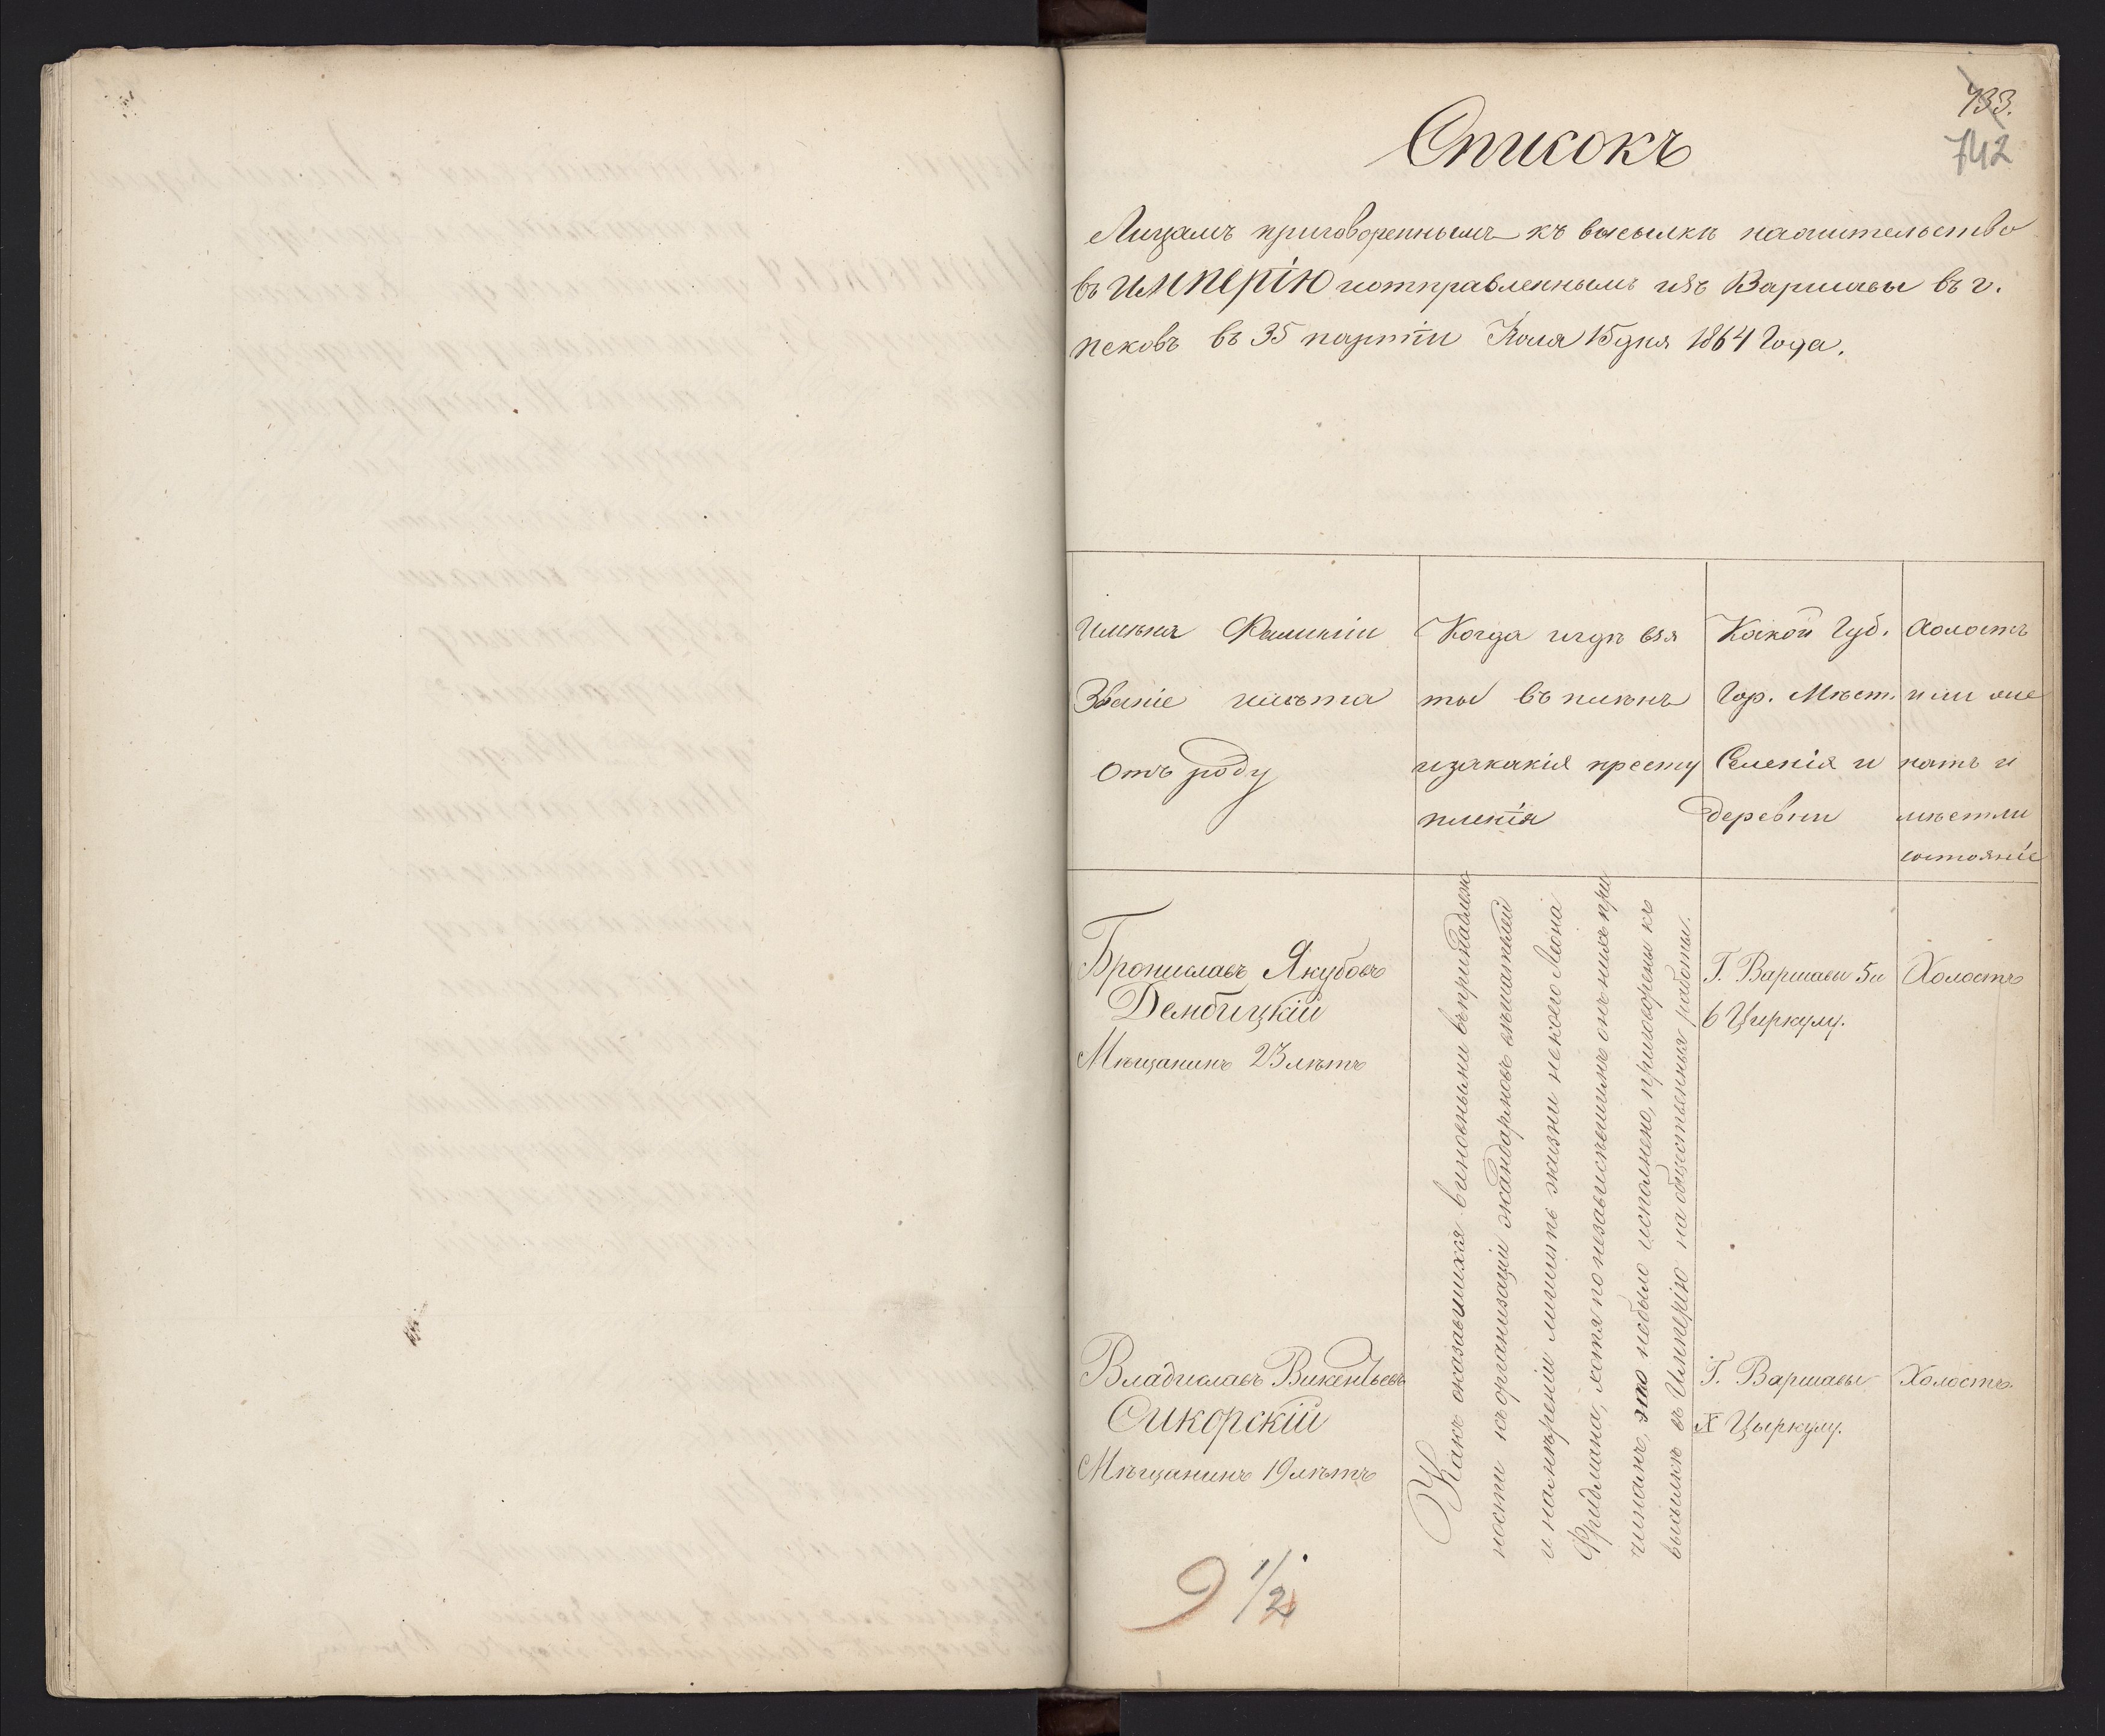 733.
742
Списокъ
Лицамъ приговореннымъ къ высылкѣ нажительство
въ Имперію иотправленнымъ изъ Варшавы въ г.
Псковъ въ 35 партіи Іюля 15 дня 1864 Года.
Имена Фамиліи
Званіе илѣта
отъ роду
Когда игдѣ взя
ты въ плѣнъ
изакакія престу
пленія
Какой Губ.
Гор. Мѣст.
Селенія и
деревни
Холостъ
или же
натъ и
имѣетли
состояніе
Брониславъ Якубовъ
Дембицкій
Мѣщанинъ 23 лѣтъ
Какъ оказавшихся виновными въпринадлеж
ности къорганизаціи жандармовъ вѣшателей
и намѣреніи лишить жизни некоего Леона
Фридмана, хотя понезависѣвшимъ отъ нихъ при
чинамъ, это небыло исполнено, приговорены къ
высылкѣ въ Имперію на общественныя работы.
Г. Варшавы 5 и
6 Циркулу.
Холостъ
Владиславъ Викентьевъ
Сикорскій
Мѣщанинъ 19 лѣтъ
Г. Варшавы
X Цыркулу.
Холостъ.
9 1/2